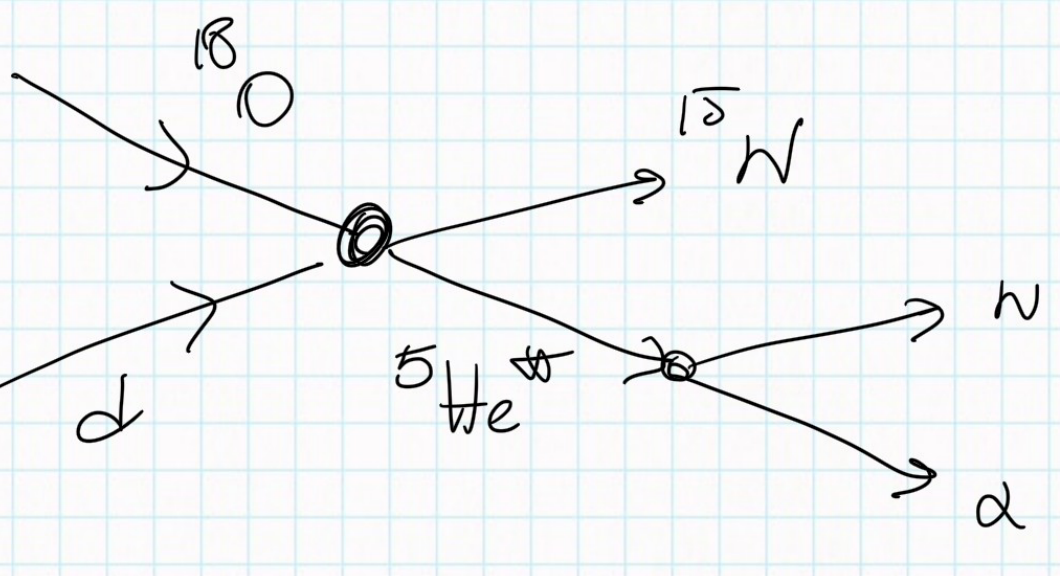 ¹⁸O
¹⁵N
d
⁵He*
n
α